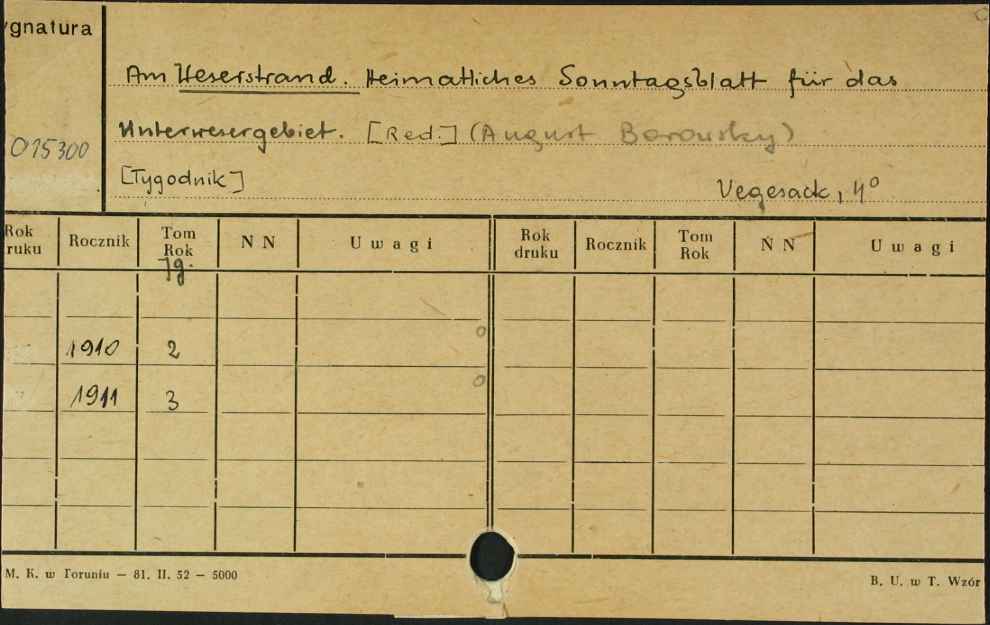 ygnatura
Am Weserstrand. Heimatliches Sonntagsblatt für das
Unterwesergebiet. [Red.] (August Borowsky)
015300
[Tygodnik]
Vegesack, 4°
Rok ruku Rocznik Tom Rok N N Uwagi Rok druku Rocznik Tom Rok N N Uwagi
Jg.
1910 2
1911 3
M. K. w Toruniu — 81. II. 52 — 5000
B. U. w T. Wzór